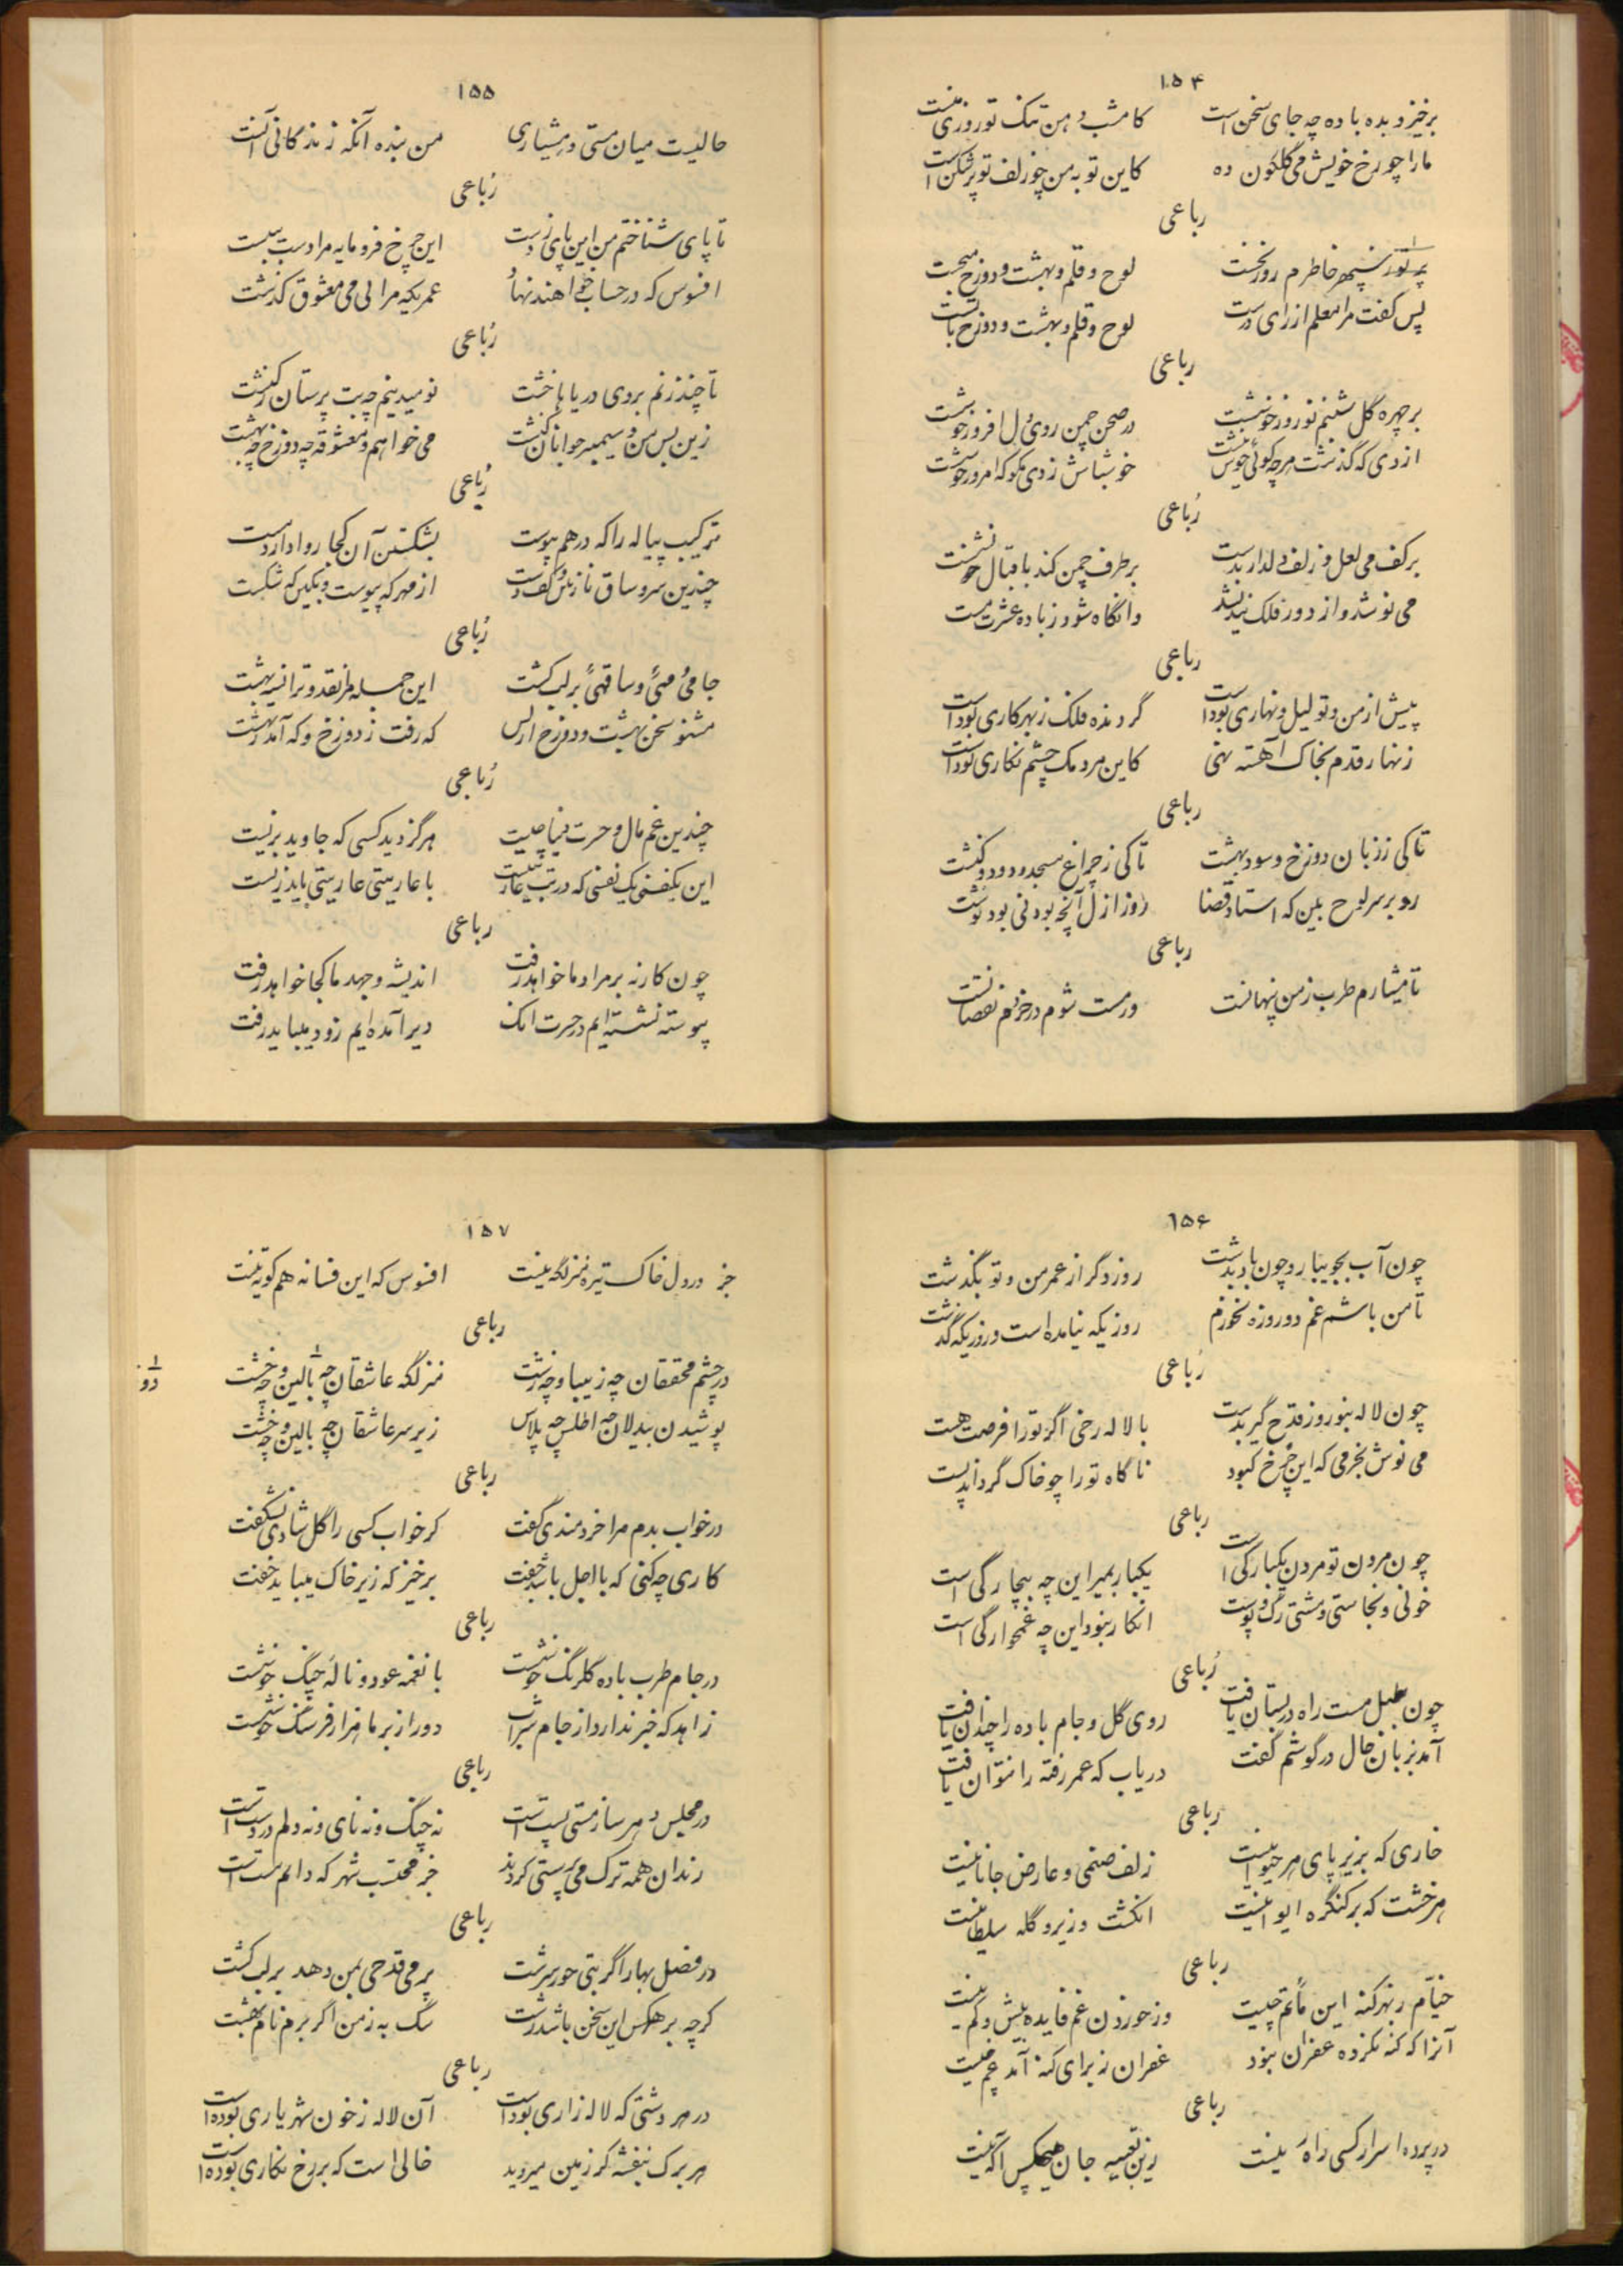 ۱۵۴
برخیز و بده باده چه جای سخن است کامشب دهن تنگ تو روزی منست
ما را چو رخ خویش می گلگون ده کاین توبه من چو زلف تو پرشکن است
رباعی
سپهر خاطرم روز نخست لوح و قلم و بهشت و دوزخ میجست
پس گفت مرا معلم از رای درست لوح و قلم و بهشت و دوزخ با تست
رباعی
بر چهره گل شبنم نوروز خوشست در صحن چمن روی دل افروز خوشست
از دی که گذشت هرچه گوئی خوش نیست خوشباش ز دی مگو که امروز خوشست
رباعی
بر کف می لعل و زلف دلدار بدست بر طرف چمن کند باقبال نشست
می نوشد و از دور فلک نندیشد وانگاه شود ز باده عشرت مست
رباعی
پیش از من و تو لیل و نهاری بوداست گردنده فلک ز بهر کاری بوداست
زنهار قدم بخاک آهسته نهی کاین مردمک چشم نگاری بوداست
رباعی
تا کی ز زیان دوزخ و سود بهشت تا کی ز چراغ مسجد و دود کنشت
رو بر سر لوح بین که استاد قضا روز ازل آنچه بودنی بود نوشت
رباعی
تا هشیارم طرب ز من پنهانست ور مست شوم در خردم نقصانست
۱۵۵
حالیست میان مستی و هشیاری من بنده آنکه زندگانی آنست
رباعی
تا پای شناختم من این پای ز دست این چرخ فرومایه مرا دست ببست
افسوس که در حساب خواهند نهاد عمریکه مرا بی می و معشوق گذشت
رباعی
تا چند زنم بروی دریاها خشت نومیدینم چه بت پرستان کنشت
زین پس من و سیمبر جوانان کنشت می خواهم و معشوقه چه دوزخ چه بهشت
رباعی
ترکیب پیاله را که درهم پیوست بشکستن آن کجا روا دارد مست
چندین سر و ساق نازنین و کف دست از مهر که پیوست و بکین که شکست
رباعی
جامی و میی و ساقیی بر لب کشت این جمله مرا نقد و ترا نسیه بهشت
مشنو سخن بهشت و دوزخ از کس که رفت ز دوزخ و که آمد ز بهشت
رباعی
چندین غم مال و حسرت دنیا چیست هرگز دیدی کسی که جاوید بزیست
این یکنفسی یک نفسی که در تنت عاریتست با عاریتی عاریتی باید زیست
رباعی
چون کار نه بر مراد ما خواهد رفت اندیشه و جهد ما کجا خواهد رفت
پیوسته نشسته ایم در حسرت انک دیر آمده ایم زود میباید رفت
۱۵۶
چون آب بجویبار و چون باد بدشت روز دگر از عمر من و تو بگذشت
تا من باشم غم دو روزه نخورم روزیکه نیامده است و روزیکه گذشت
رباعی
چون لاله بنوروز قدح گیر بدست با لاله رخی اگر تو را فرصت هست
می نوش بخرمی که این چرخ کبود ناگاه تو را چو خاک گرداند پست
رباعی
چون مردن تو مردن یکبارگی است یکبار بمیر این چه بیچارگی است
خونی و نجاستی و مشتی رگ و پوست انکار نبود این چه غمخوارگی است
رباعی
چون بلبل مست راه در بستان یافت روی گل و جام باده را خندان یافت
آمد بزبان حال در گوشم گفت دریاب که عمر رفته را نتوان یافت
رباعی
خاری که بزیر پای هر حیوانیست زلف صنمی و عارض جانانیست
هر خشت که بر کنگره ایوانیست انگشت وزیر و کله سلطانیست
رباعی
خیام ز بهر گنه این ماتم چیست وز خوردن غم فایده بیش و کم نیست
آنرا که گنه نکرده غفران نبود غفران ز برای گنه آمد غم چیست
رباعی
در پرده اسرار کسی را ره نیست زین تعبیه جان هیچکس آگه نیست
۱۵۷
جز در دل خاک تیره منزلگه نیست افسوس که این فسانه هم کوته نیست
رباعی
در چشم محققان چه زیبا و چه زشت منزلگه عاشقان چه بالین و چه خشت
دو
پوشیدن بیدلان چه اطلس چه پلاس زیر سر عاشقان چه بالین و چه خشت
رباعی
در خواب بدم مرا خردمندی گفت کز خواب کسی را گل شادی نشکفت
کاری چه کنی که با اجل باشد جفت برخیز که زیر خاک میباید خفت
رباعی
در جام طرب باده گلرنگ خوشست با نغمه عود و ناله چنگ خوشست
زاهد که خبر ندارد از جام شراب دور از بر ما هزار فرسنگ خوشست
رباعی
در مجلس دهر ساز مستی پست است نه چنگ و نه نای و نه دلم در دست است
رندان همه ترک می پرستی کردند جز محتسب شهر که دایم مست است
رباعی
در فصل بهار اگر بتی حور سرشت پر می قدحی بمن دهد بر لب کشت
گرچه بر هرکس این سخن باشد زشت سگ به ز من اگر برم نام بهشت
رباعی
در هر دشتی که لاله زاری بوداست آن لاله ز خون شهریاری بوده است
هر برگ بنفشه کز زمین میروید خالی است که بر رخ نگاری بوده است